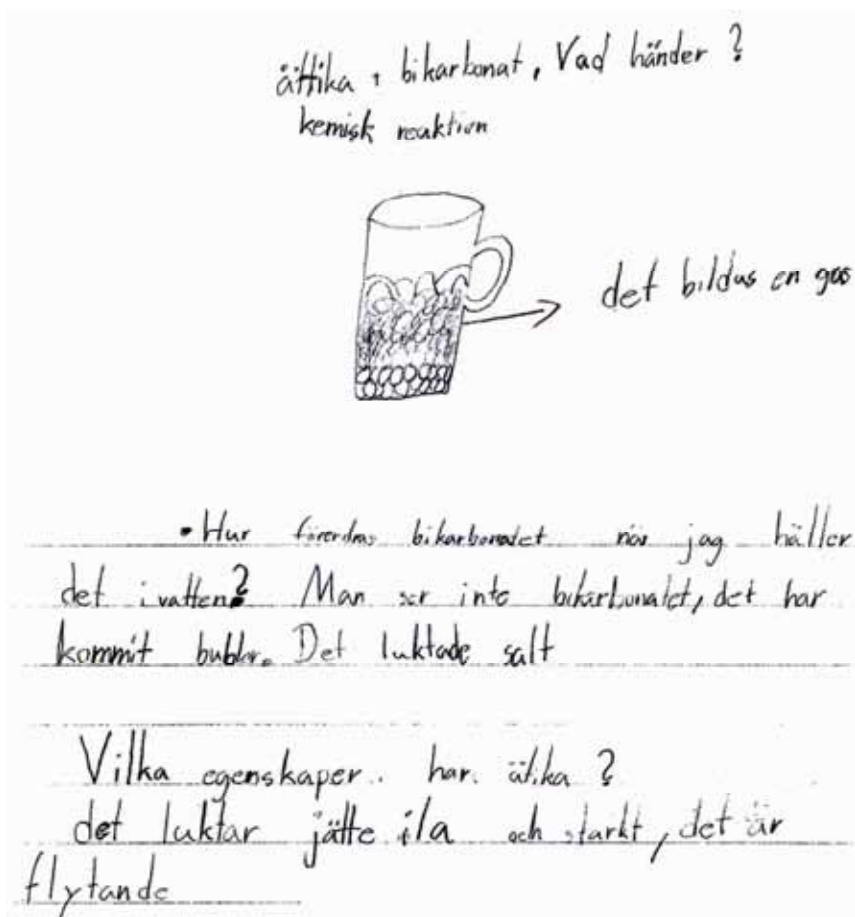 ättika + bikarbonat, Vad händer?
kemisk reaktion
det bildas en gas
• Hur förendras bikarbonadet när jag häller
det i vatten? Man ser inte bikarbonatet, det har
kommit bubblor. Det luktade salt
Vilka egenskaper har ätika?
det luktar jätte ila och starkt, det är
flytande